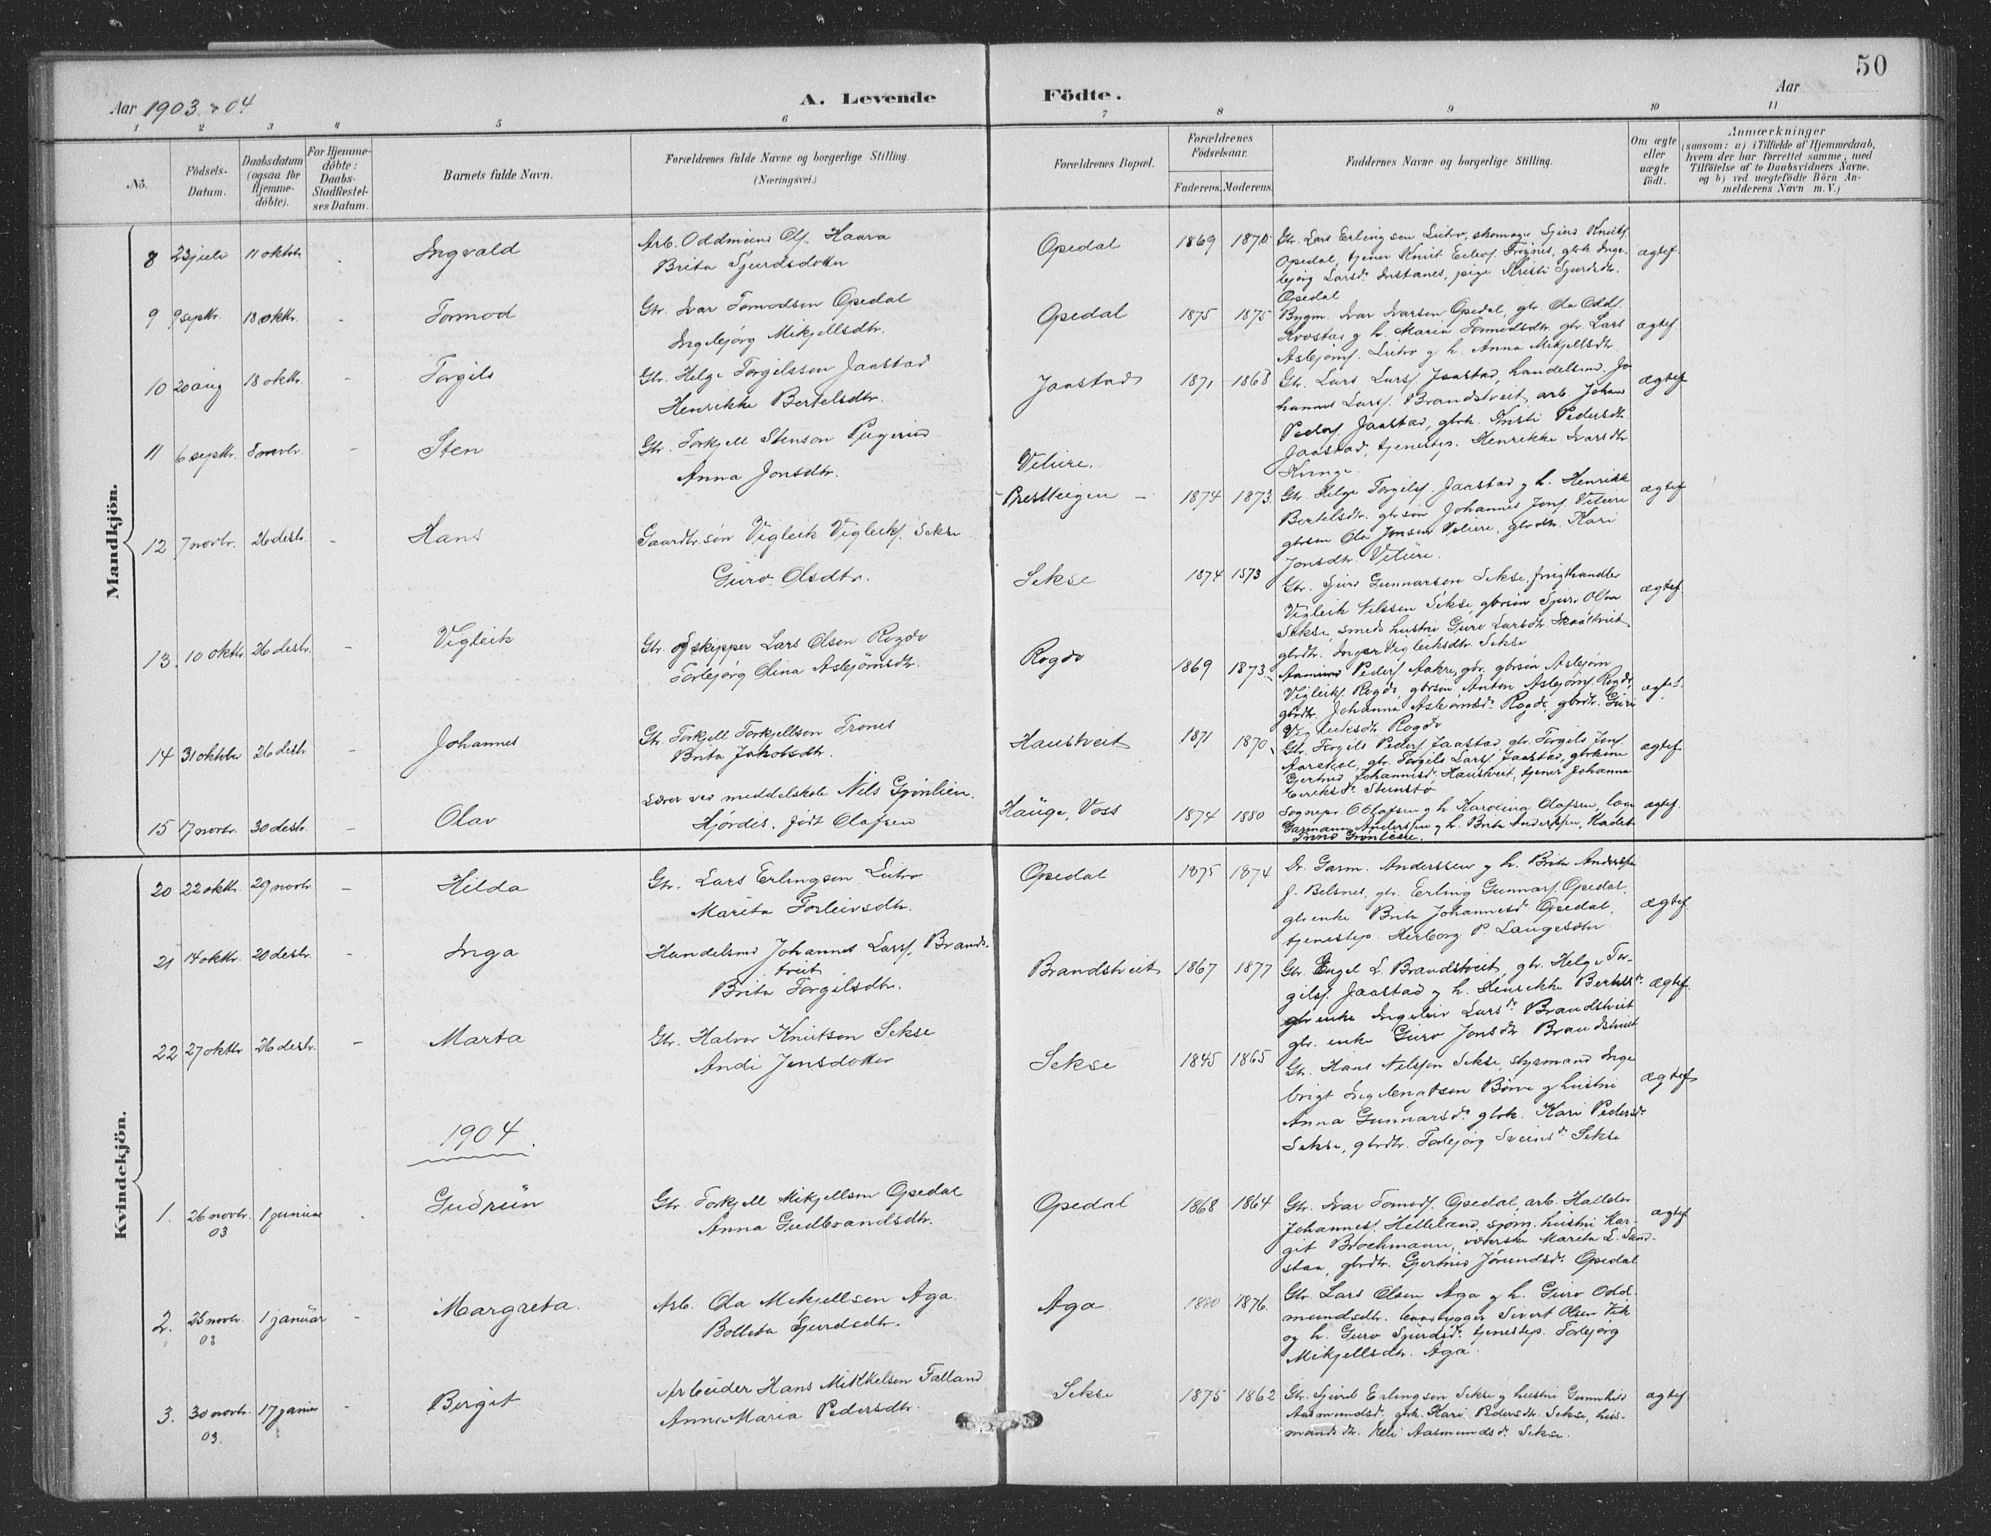 50
Aar 1903 & 04.
A. Levende Födte.
Aar
1 2 3 4 5 6 7 8 9 10 11
No.
Födsels-Datum.
Daabsdatum (ogsaa for Hjemme-döbte).
For Hjemme-döbte: Daabs-Stadfæstel-ses Datum.
Barnets fulde Navn.
Forældrenes fulde Navne og borgerlige Stilling. (Næringsvei.)
Forældrenes Bopæl.
Forældrenes Födselsaar.
Faderens. Moderens.
Faddernes Navne og borgerlige Stilling.
Om ægte eller uægte födt.
Anmærkninger
(saasom: a) i Tilfælde af Hjemmedaab, hvem der har forrettet samme, med Tilföielse af to Daabsvidners Navne. og b) ved uægtefödte Börn An-melderens Navn m. V.)
Mandkjön.
8 23 juli 11 oktbr - Ingvald
Arb. Oddmund Ols. Haara
Brita Sjurdsdotter
Opedal 1869 1870
Gbr. Lars Erlingsen Lutro, skomager Sjurd Knuts.
Opedal, tjener Knut Eilevs. Frøynes, gbrk. Inge-
bjørg Larsdr. Instanes, pige Kristi Sjurdsdr.
Opedal
ægtef.
9 9 septbr. 18 oktbr. - Tormod
Gbr. Ivar Tormodsen Opedal
Ingebjørg Mikjellsdtr.
Opedal 1875 1875
Bygm. Ivar Ivarsen Opedal, gbr. Ola Odds.
Aslejørns. Lutro og h. Anna Mikjellsdtr.
ægtef.
10 20 aug 18 oktbr. - Torgils
Gbr. Helge Torgilssen Jaastad
Henrikke Bertelsdtr.
Jaastad 1871 1868
Gbr. Lars Lars. Jaastad, handelsmd. Jo-
hannes Lars. Brandstveit, arb. Johan
Peders. Jaastad, gbrk. Kristi Pedersdtr.
Jaastad, tjenestep. Henrikke Ivarsdtr.
ægtef
11 6 septbr. 8 novbr. - Sten
Gbr. Torkjell Stenson
Anna Jonsdtr.
Velure.
Prestteigen - 1874 1873.
Gbr. Helge Torgils. Jaastad og h. Henrikke
Bertelsdtr. gbrsøn Johannes Jons. Velure
gbrsøn Ola Jonsen Velure, gbrdtr. Kari
Jonsdtr. Velure.
ægtef
12 7 novbr. 26 desbr. - Hans
Gaardbr.søn Vigleik Vigleiks. Sekse
Guro Olsdtr.
Sekse 1874 1873
Gbr. Sjurd Gunnarsen Sekse, frugthandler
Vigleik Nilssen Sekse, gbrsøn Sjur Olsen
Sekse, smeds hustru Guro Larsdtr. Skaaltveit
gbrdtr. Inger Vigleiksdtr. Sekse
ægtef.
13. 10 oktbr 26 desbr. - Vigleik
Gbr. og skipper Lars Olsen Rogde
Torbjørg Olina Aslejørnsdtr.
Rogde 1869 1873.
Aamund Peders. Aakre, gbr. gbrsøn Aslejørn
Vigleiks. Rogde, gbrsøn Anton Aslejørns. Rogde,
gbrdtr. Johanna Aslejørnsdr. Rogde, gbrdtr. Guri
Vigleiksdtr Rogde
ægtef.
14 31 oktober 26 desbr - Johannes
Gbr. Torkjell Torkjellson Trones
Brita Jakobsdtr.
Haustveit 1871 1870
Gbr. Torgils Peders. Jaastad, gbr. Torgils Jons.
Aarekol, gbr. Torgils Lars. Jaastad, gbrkone
Gjertrud Johannesdr. Haustveit, tjener Johanna
Eiriksdr. Stunstø
ægtef
15 17 novbr. 30 desbr. - Olav
Lærer ved middelskole Nils Grønlien.
Hjørdes. født Olafsen
Hauge, Voss 1874 1880
Sognepr. O. Olafsen og h. Karolina Olafsen, læge
Garmann Anderssen og h. Brita Anderssen, Kadet
Trond Grønlien.
ægtef.
Kvindekjön.
20 22 oktbr 29 novbr - Hilda
Gbr. Lars Erlingsen Lutro
Marita Torleivsdtr.
Opedal 1875 1874
Dr. Garm. Anderssen og h. Brita Anderssen
f. Belsnes, gbr. Erling Gunnars. Opedal,
gbrenke Brita Johannesdr. Opedal,
tjenestep. Herborg P. Laugesdtr
ægtef.
21 14 oktbr. 20 desbr. - Inga
Handelsmd Johannes Lars. Brands-
tveit
Brita Torgilsdtr.
Brandstveit 1867 1877
Gbr. Engel L. Brandstveit, gbr. Helge Tor-
gils. Jaastad og h. Henrikke Bertelsdr.
gbrenke Ingeleiv Larsdr. Brandstveit
gbr. enke Guro Jonsdtr Brandstveit
ægtef.
22 27 oktbr 26 desbr. - Marta
Gbr. Halvor Knutson Sekse
Andi Jensdotter
Sekse 1845 1865
Gbr. Hans Nilsson Sekse, styrmand Inge-
brigt Ingebrigtsen Børve og hustru
Anna Gunnarsdr. gbrk. Kari Pedersdr.
Sekse, gbrdtr. Torbjørg Sveinsdr. Sekse
ægtef
1904.
1. 26 novbr. 03 1 januar - Gudrun
Gbr. Torkjell Mikjellsen Opedal
Anna Gudbrandsdtr.
Opedal 1868 1864
Gbr. Ivar Tormods. Opedal, arb. Halldor
Johannes. Helleland, sjøm. hustru Mar-
git Brochmann, væverske Marita L. Sand-
staa, gbrdtr. Gjertrud Jørundsdr. Opedal
ægtef
2. 25 novbr. 03 1 januar - Margreta.
Arb. Ola Mikjellsen Aga.
Botleta Sjurdsdtr.
Aga. 1880 1876.
Gbr. Lars Olsen Aga og h. Guro Odd-
mundsdtr. baadbygger Sivert Olsen Vik
og h. Guro Sjursdr. tjenestep. Torbjørg
Mikjellsdtr. Aga.
3. 30 novbr. 03. 17 januar - Bergit
Arbeider Hans Mikkelsen Tælland
Anna Maria Pedersdtr.
Sekse 1875 1862
Gbr. Sjurd Erlingsen Sekse og hustru Gunnhild
Aasmundsdr. gbrk. Kari Pedersdtr. Sekse, hus-
mands dtr. Eli Aasmundsdr. Sekse.
ægtef